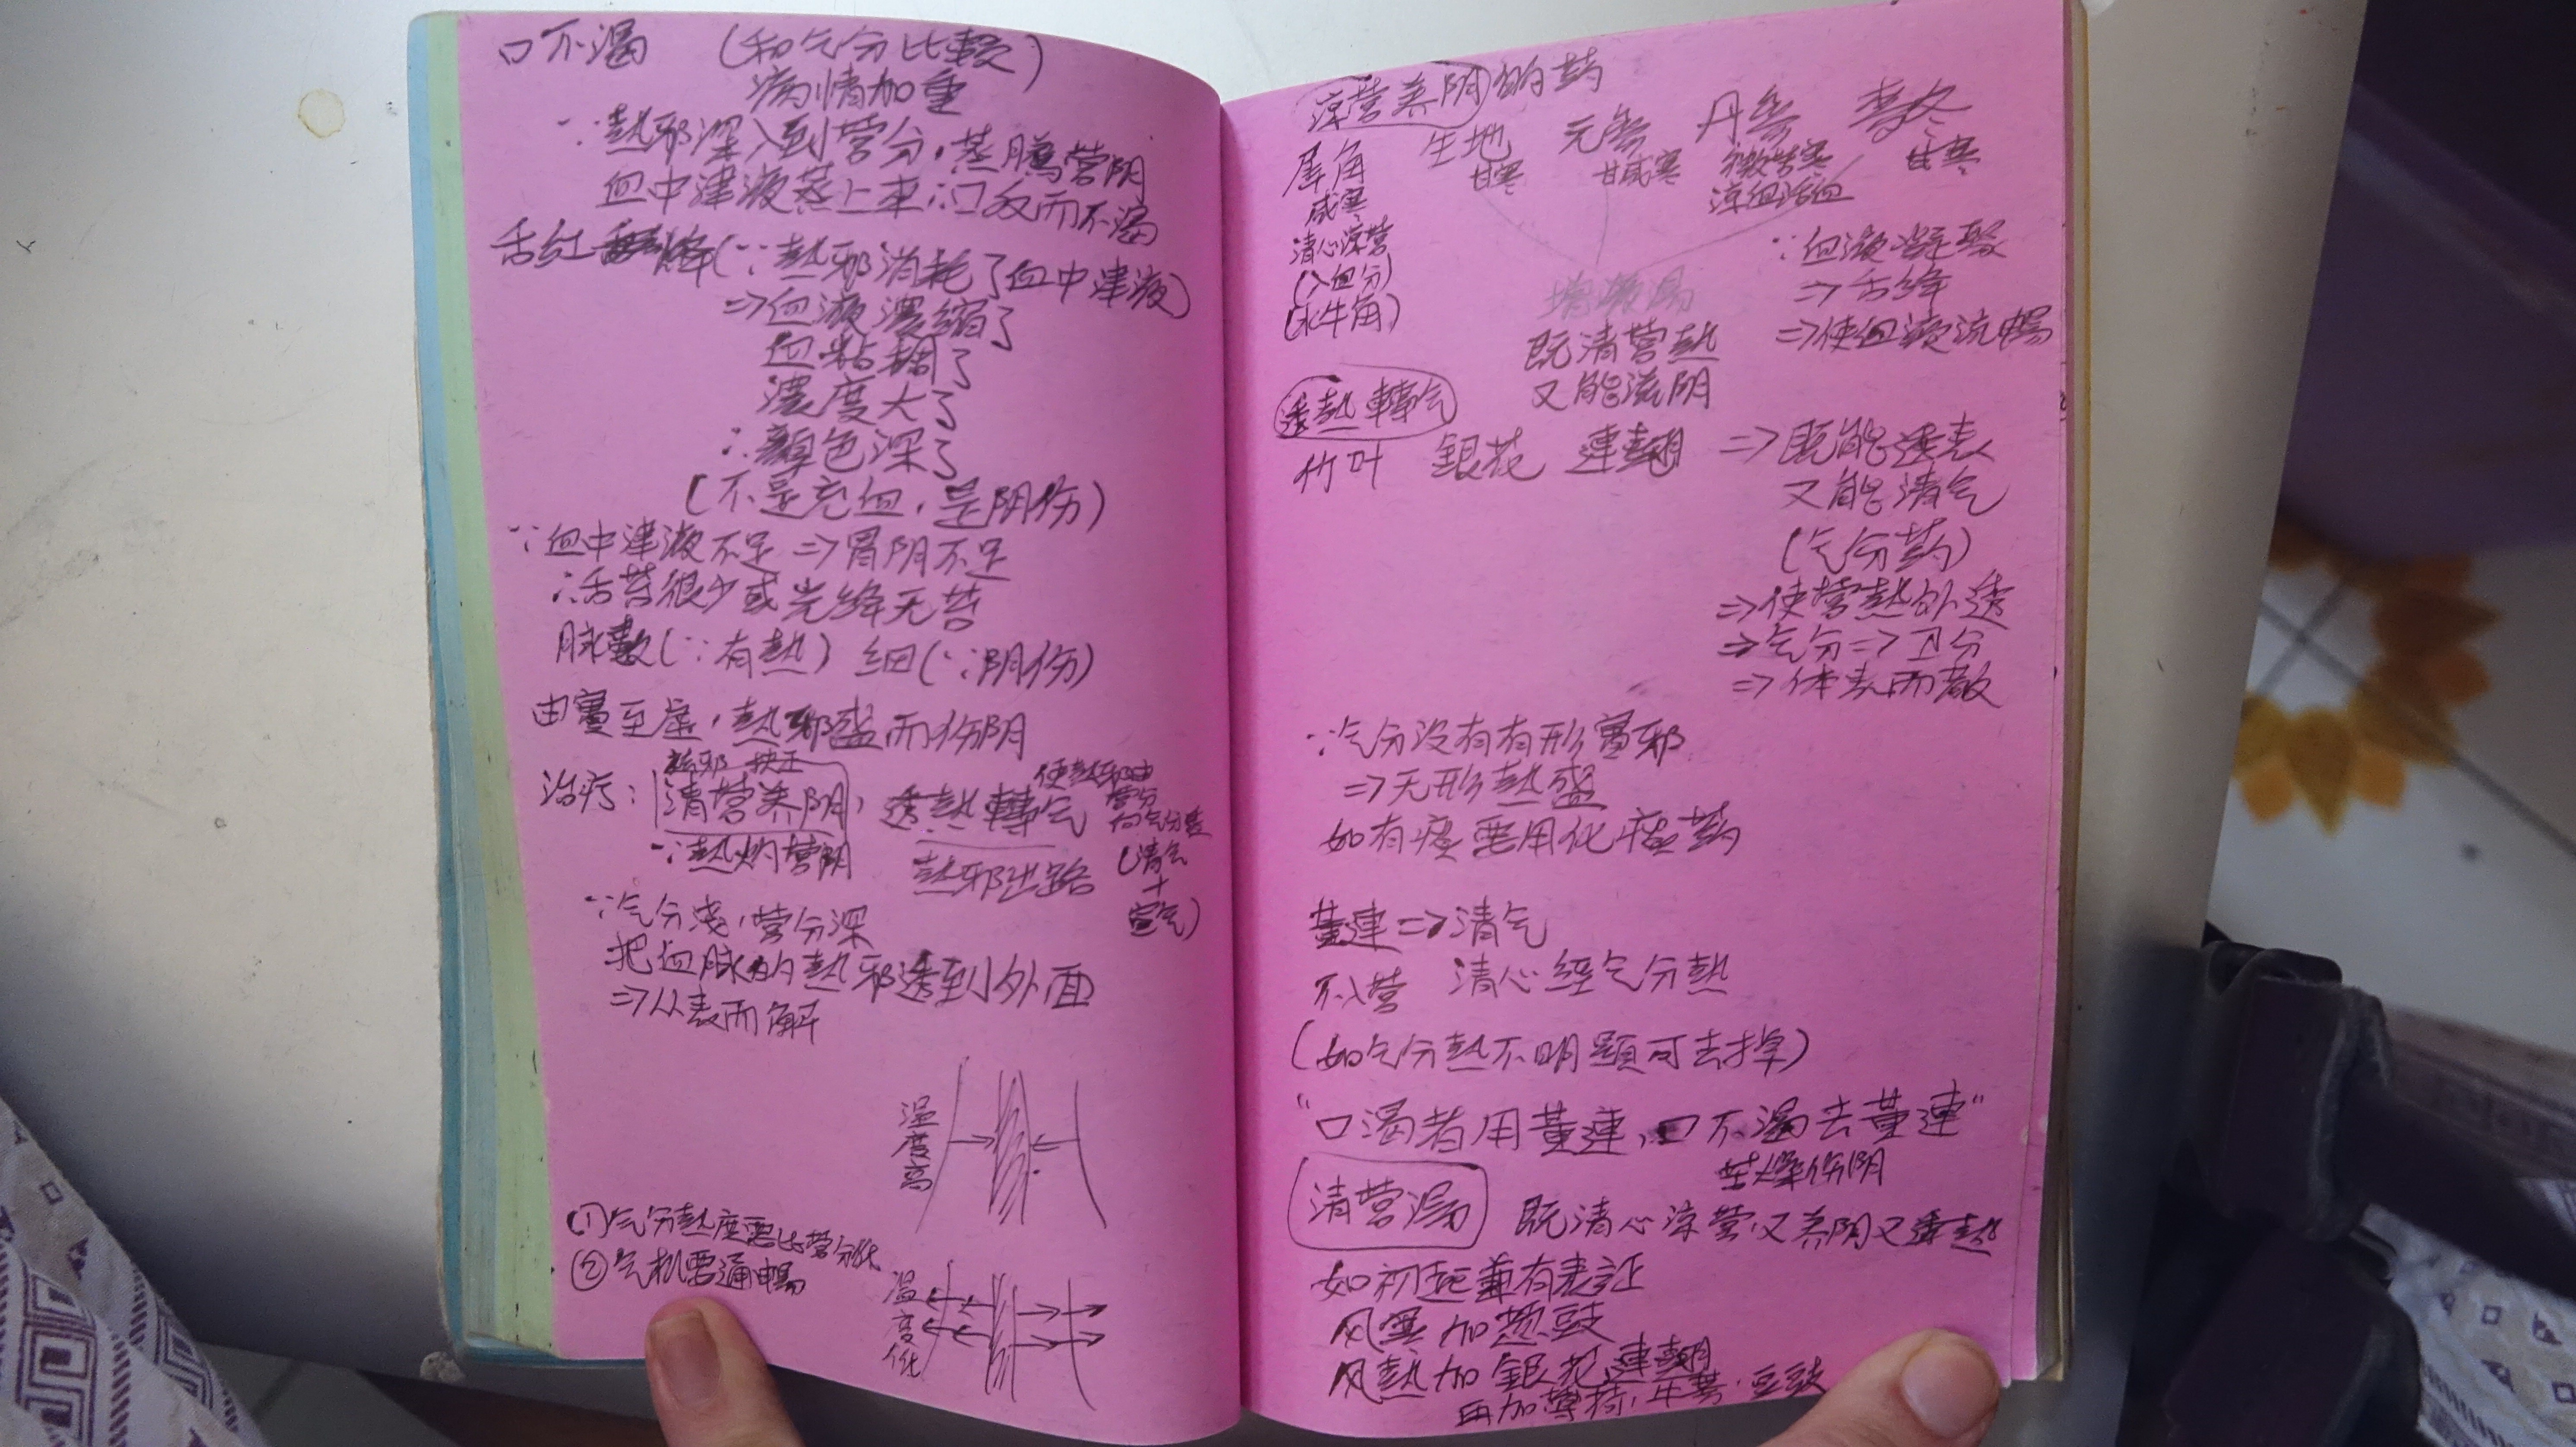 口不渴 (和气分比較)
病情加重
∵熱邪深入到营分,蒸騰营阴
血中津液蒸上来∴口反而不渴
舌红絳(∵熱邪消耗了血中津液)
⇒血液濃缩了
血粘稠了
濃度大了
∴顏色深了
(不是充血,是阴伤)
∵血中津液不足⇒胃阴不足
∴舌苔很少或光絳无苔
脉數(∵有熱) 细(∵阴伤)
由實至虛,熱邪盛而伤阴
祛邪 扶正
治疗:清营养阴,透熱轉气
使熱邪由
营分
向气分透
(清气
+
宣气)
∵熱灼营阴 熱邪出路
∵气分浅,营分深
把血脉的熱邪透到外面
⇒从表而解
温度高
(1)气分熱度要比营分低
(2)气机要通暢
温度低
凉营养阴的药
犀角 生地 元参 丹参 麦冬
咸寒 甘寒 甘咸寒 微苦寒 甘寒
清心凉营 凉血活血
(入血分)
(水牛角)
∵血液凝聚
⇒舌絳
⇒使血液流暢
增液湯
既清营熱
又能滋阴
透熱轉气
竹叶 銀花 連翹 ⇒既能透表
又能清气
(气分药)
⇒使营熱外透
⇒气分⇒卫分
⇒体表而散
∵气分没有有形實邪
⇒无形熱盛
如有痰要用化痰药
黄連⇒清气
不入营 清心经气分熱
(如气分熱不明顯可去掉)
“口渴者用黄連,口不渴去黄連”
苦燥伤阴
清营湯 既清心凉营又养阴又透熱
如初起兼有表证
风寒加葱豉
风熱加銀花連翹
再加薄荷,牛蒡,豆豉